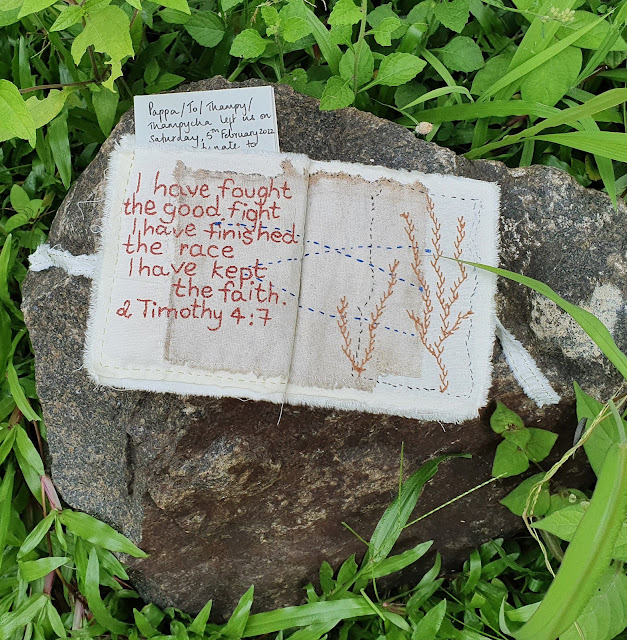 Pappa/To/Thampy/
Thampycha left us on
Saturday, 5th February 2022
to
I have fought
the good fight
I have finished
the race
I have kept
the faith.
2 Timothy 4:7